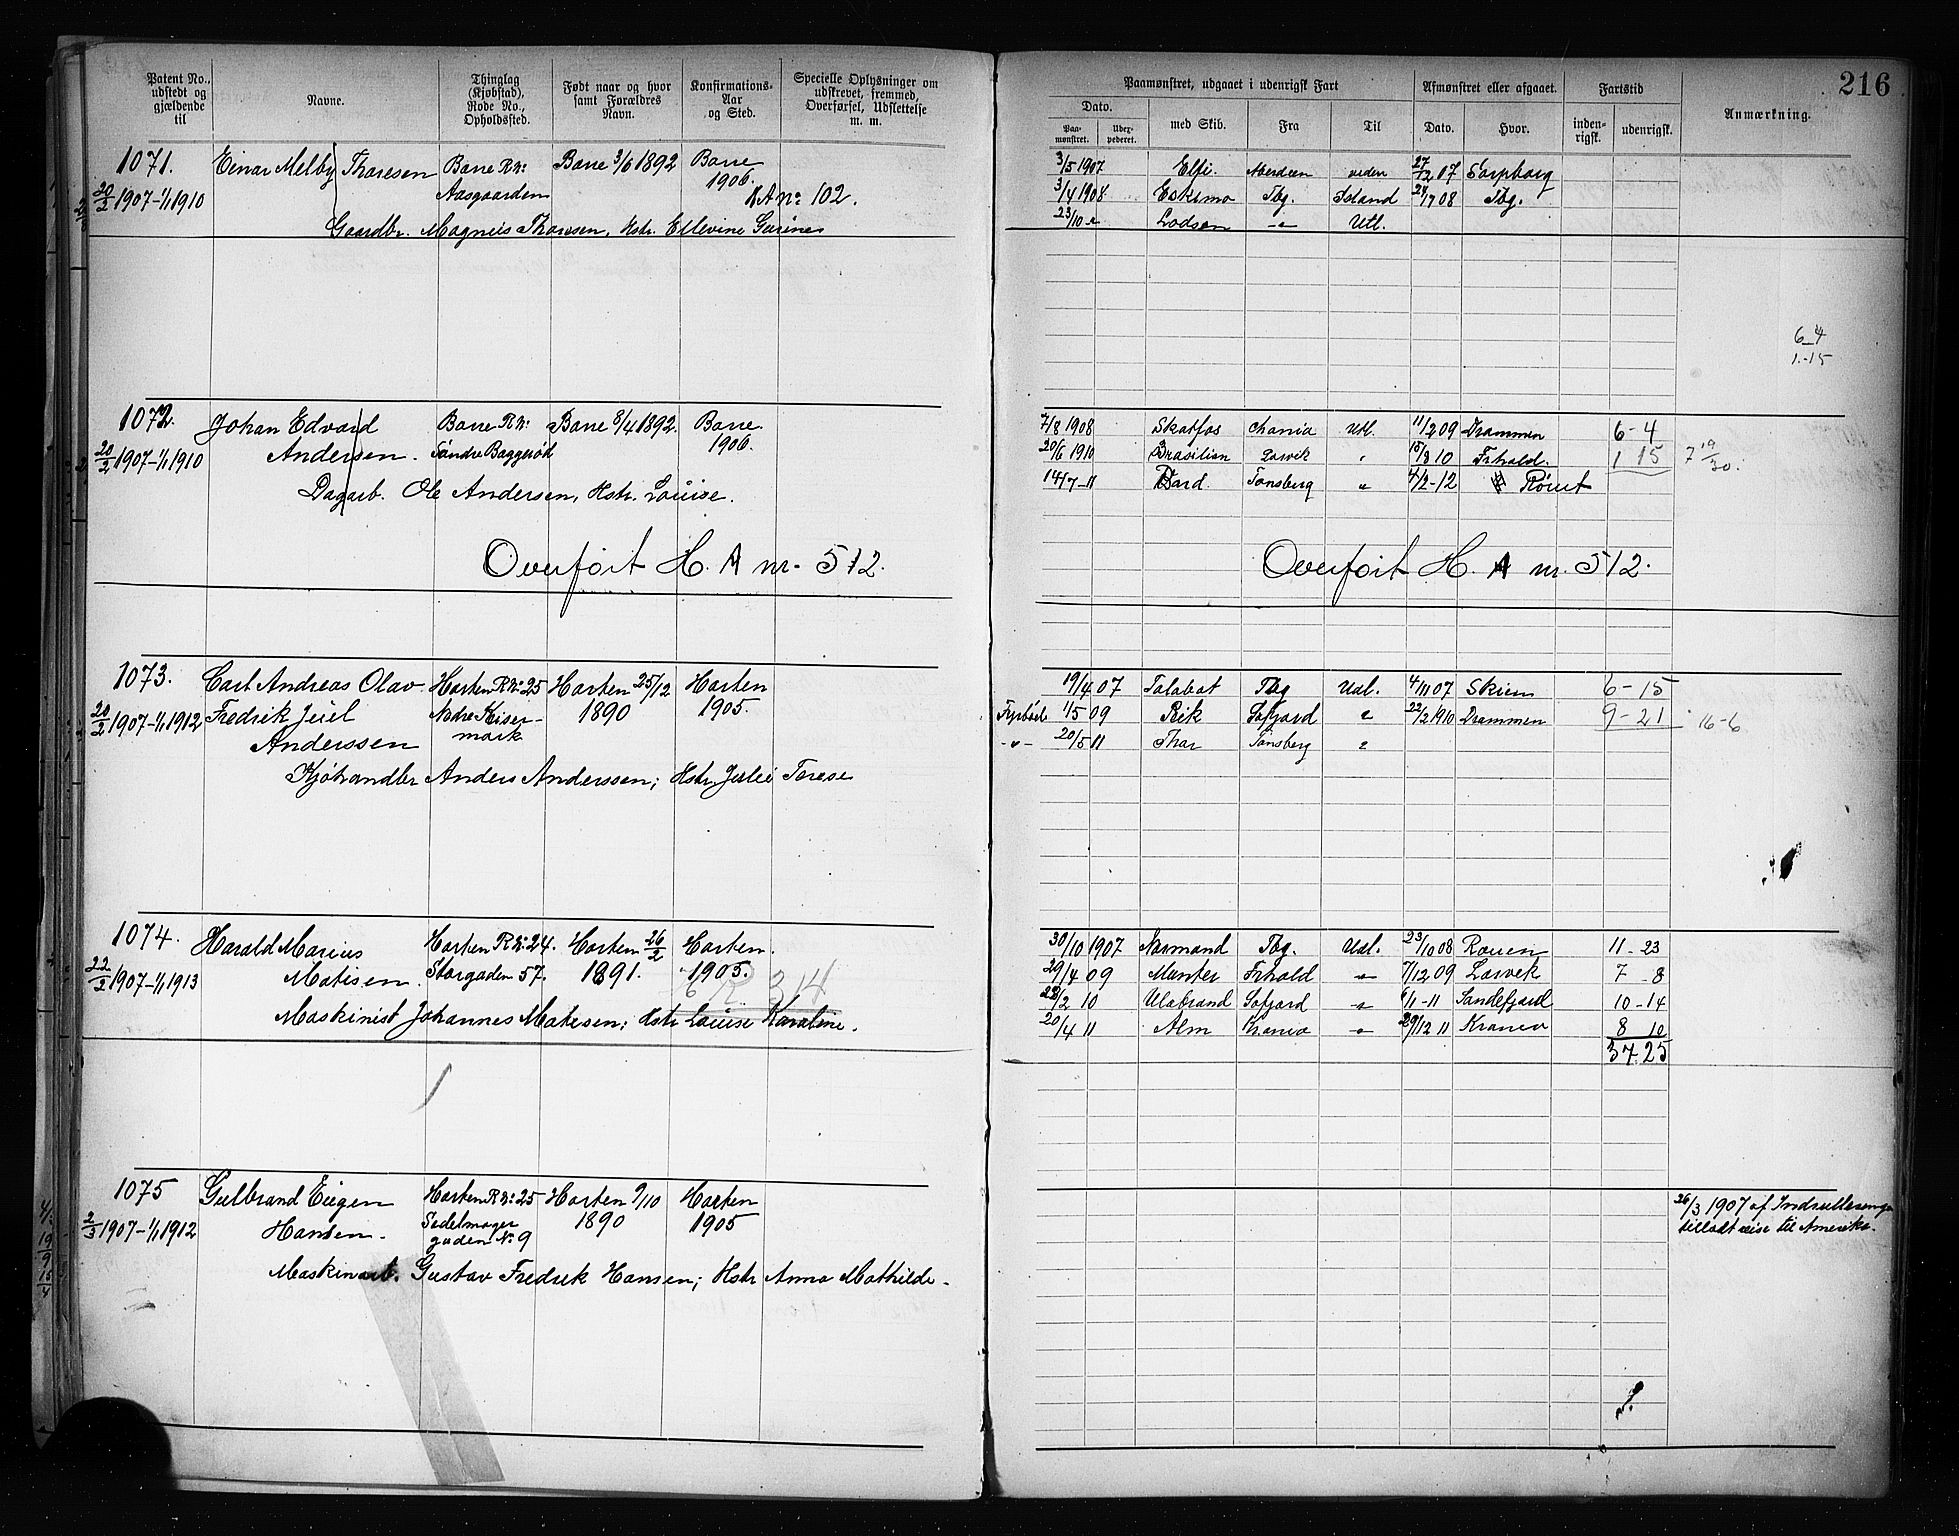 216
Patent No., udstedt og gjældende til
Navne.
Thinglag (Kjøbstad), Rode No., Opholdssted.
Født naar og hvor samt Forældres Navn.
Konfirmations-Aar og Sted.
Specielle Oplysninger om udskrevet, fremmed, Overførsel, Udslettelse m. m.
Paamønstret, udgaaet i udenrigsk Fart
Afmønstret eller afgaaet.
Fartstid
Anmærkning.
Dato.
Paa-mønstret.
med Skib.
Fra
Til
Dato.
Hvor.
inden-rigsk.
udenrigsk.
1071. Einar Melby Thoresen Borre R No: Borre 3/6 1892 Borre
20/2 1907-1/1 1910 Aasgaarden 1906. R A no 102.
Gaardbr. Magnus Thoresen, Hstr. Ellevine
3/5 1907 Elfi. Aberdeen 27/12 07 Sarpborg
3/4 1908 Eskimo Tbg. Island 24/7 08 Tbg.
23/10 Lodsen Utl.
6-4
1.-15
1072. Johan Edvard Borre R No: Borre 8/4 1892. Borre
20/2 1907-1/1 1910 Andersen. Søndre Baggerød 1906.
Dagarb. Ole Andersen, Hstr. Louise.
Overført H. A nr. 512.
7/8 1908 Skotfos Chania Utl. 11/2 09 Drammen 6-4
20/6 1910 Brasilian Larvik 15/8 10 Frhald. 1 15 7 19/30.
14/7-11 Bard. Tønsberg " 4/2-12
Overført H. A nr. 512.
1073. Carl Andreas Olav Horten R No: 25 Horten 25/12 Horten
20/2 1907-1/1 1912 Fredrik Juel Nedre Keiser- 1890 1905.
Anderssen mark
Kjøbhandler Anders Anderssen; Hstr. Julie Terese
19/4 07 Talabot Tbg Udl. 4/11 07 Skien 6-15
Fyrbød 1/5 09 Rik Sofjord " 22/2 1910 Drammen 9-21 16-6
-"- 20/5 11 Thor Tønsberg "
1074. Harald Marius Horten R No: 24. Horten 26/2 Horten.
22/2 1907-1/1 1913 Matisen. Storgaden 57. 1891. 1905.
R 314
Maskinist Johannes Matisen; Hstr Louise Karoline.
30/10 1907 Normand Tbg. Udl. 23/10 08 Rouen 11-23
29/4 09 Munter Frhald -"- 7/12 09 Larvik 7-8
22/2 10 Ulabrand Sofjord -"- 6/1-11 Sandefjord 10-14
20/4 11 Alm Krania -"- 29/12 11 Krania 8 10
37 25
1075 Gulbrand Eugen Horten R No: 25 Horten 9/10 Horten
2/3 1907-1/1 1912 Hansen. Sadelmager 1890 1905
gaden No 9
Maskinarb. Gustav Fredrik Hansen; Hstr Anna Mathilde.
26/3 1907 af
tilladt reise til Amerika.